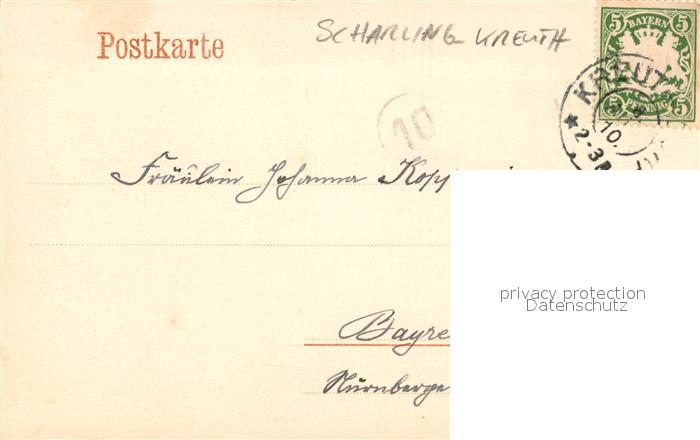 Postkarte
SCHARLING KREUTH
5 BAYERN 5
5 PFENNIG 5
KREUT
10.
2-3
10
Fräulein Johanna Kopp
privacy protection
Datenschutz
Bayre
Nürnberge